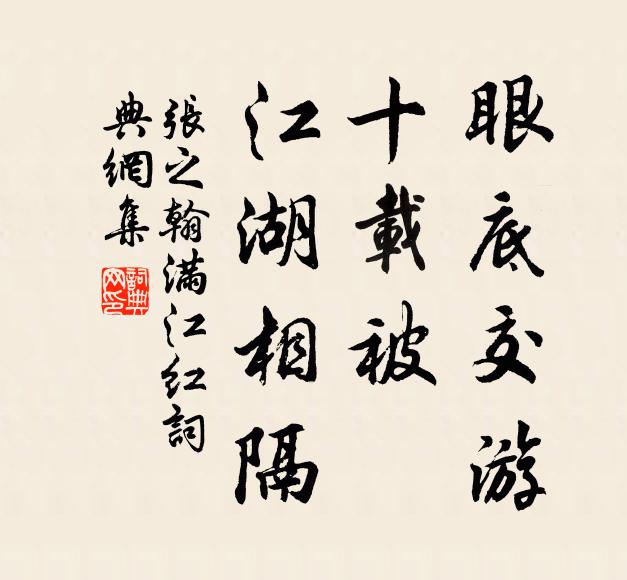 眼底交游
十載被
江湖相隔
張之翰滿江红詞
典網集
詞典
网印